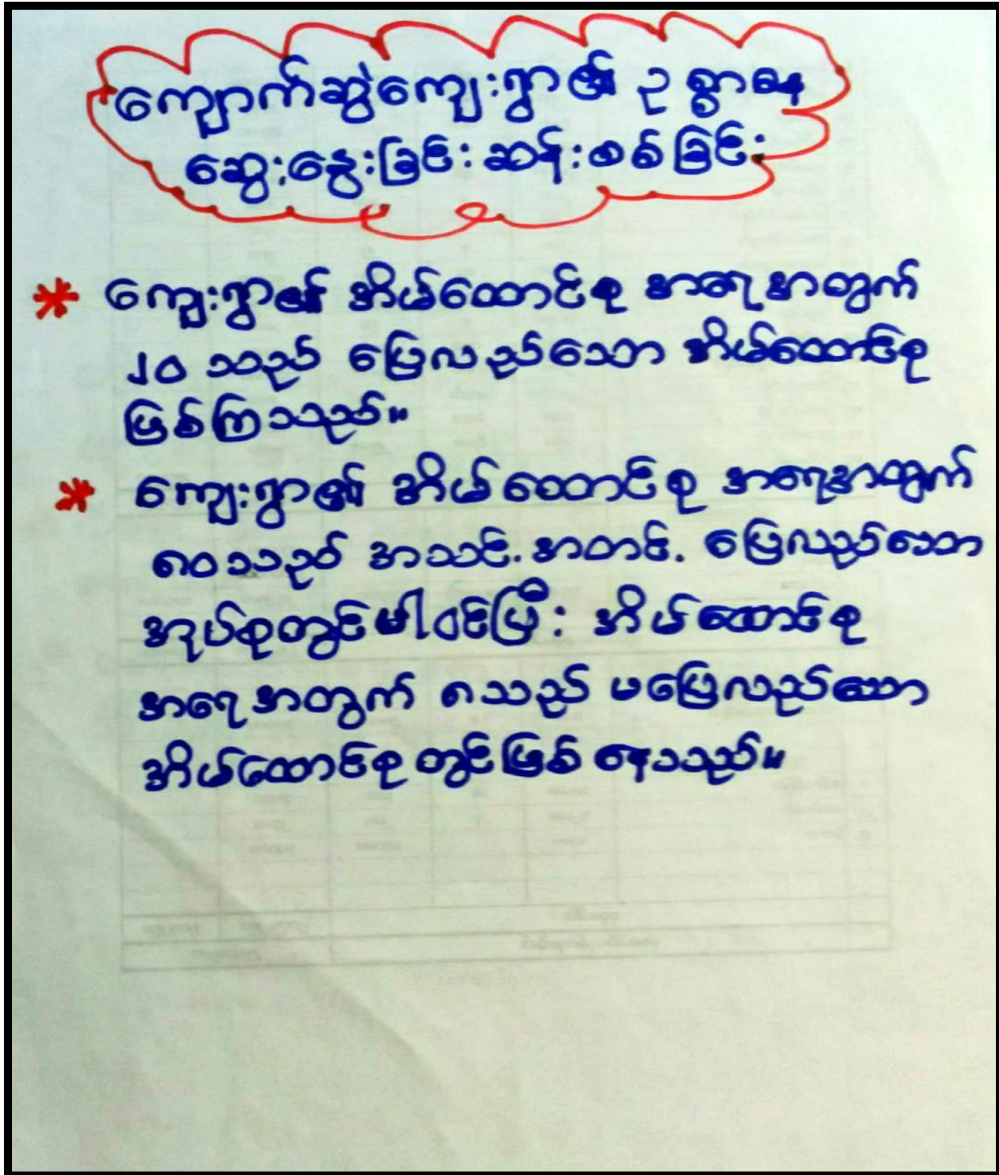 ကျောက်ဆွဲကျေးရွာ၏ ဥစ္စာဓန
ဆွေးနွေးခြင်း ဆန်းစစ်ခြင်း
ကျေးရွာ၏ အိမ်ထောင်စု အရေအတွက်
၂၀ သည် ပြေလည်သော အိမ်ထောင်စု
ဖြစ်ကြသည်။
ကျေးရွာ၏ အိမ်ထောင်စု အရေအတွက်
၈၀ သည် အသင့်အတင့် ပြေလည်သော
အုပ်စုတွင် ပါဝင်ပြီး အိမ်ထောင်စု
အရေအတွက် ၈ သည် မပြေလည်သော
အိမ်ထောင်စုတွင် ဖြစ်နေသည်။